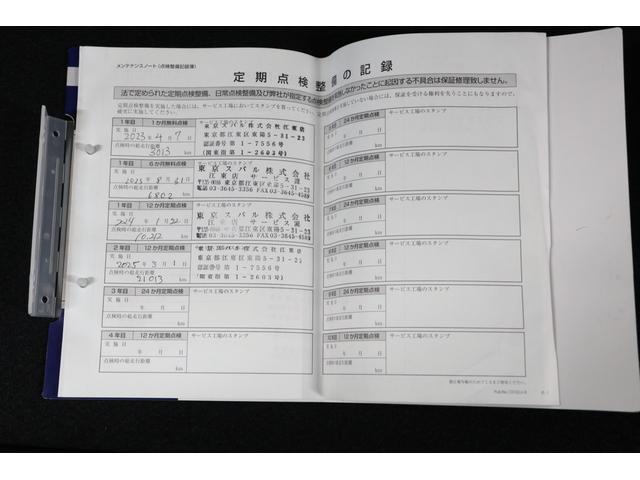 メンテナンスノート（点検整備記録簿）
定期点検整備の記録
法で定められた定期点検整備、日常点検整備及び弊社が指定する点検
しなかったことに起因する不具合は保証修理致しません。
定期点検整備を実施した場合には、サービス工場においてスタンプを貰ってください。
確実に実施してください。
していない場合には、保証を受ける権利を失うことにもなりますので、
1年目 1か月無料点検 サービス工場のスタンプ
実施日
2023年4月7日
点検時の総走行距離
3013 km
東京スバル株式会社江東店
東京都江東区東陽5-31-23
認証番号第1-7556号
(関東指第1-2603号)
1年目 6か月無料点検 サービス工場のスタンプ
実施日
2023年8月
点検時の総走行距離
6802 km
東京スバル株式会社
江東店 サービス課
東京都江東区東陽5-31-23
電話03-3645-3356 FAX03-3645-4589
1年目 12か月定期点検 サービス工場のスタンプ
実施日
1月22日
点検時の総走行距離
10,212 km
東京スバル株式会社
江東店 サービス課
東京都江東区東陽5-31-23
電話03-3645-3356 FAX03-3645-4589
2年目 12か月定期点検 サービス工場のスタンプ
実施日
2025年3月1日
点検時の総走行距離
21013 km
東京スバル株式会社江東店
東京都江東区東陽5-31-23
認証番号第1-7556号
(関東指第1-2603号)
3年目 24か月定期点検 サービス工場のスタンプ
実施日
年 月 日
点検時の総走行距離
km
4年目 12か月定期点検 サービス工場のスタンプ
実施日
年 月 日
点検時の総走行距離
km
24か月定期点検 サービス工場のスタンプ
年 月 日
km
12か月定期点検 サービス工場のスタンプ
年 月 日
km
24か月定期点検 サービス工場のスタンプ
年 月 日
km
12か月定期点検 サービス工場のスタンプ
年 月 日
km
24か月定期点検 サービス工場のスタンプ
年 月 日
km
12か月定期点検 サービス工場のスタンプ
年 月 日
km